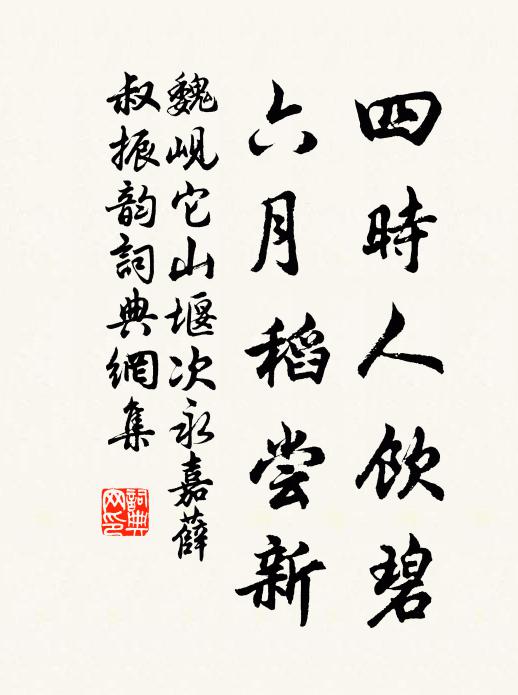 四時人飲碧
六月稻嘗新
魏峴它山堰次永嘉薛
叔振韵詞典網集
詞典网印